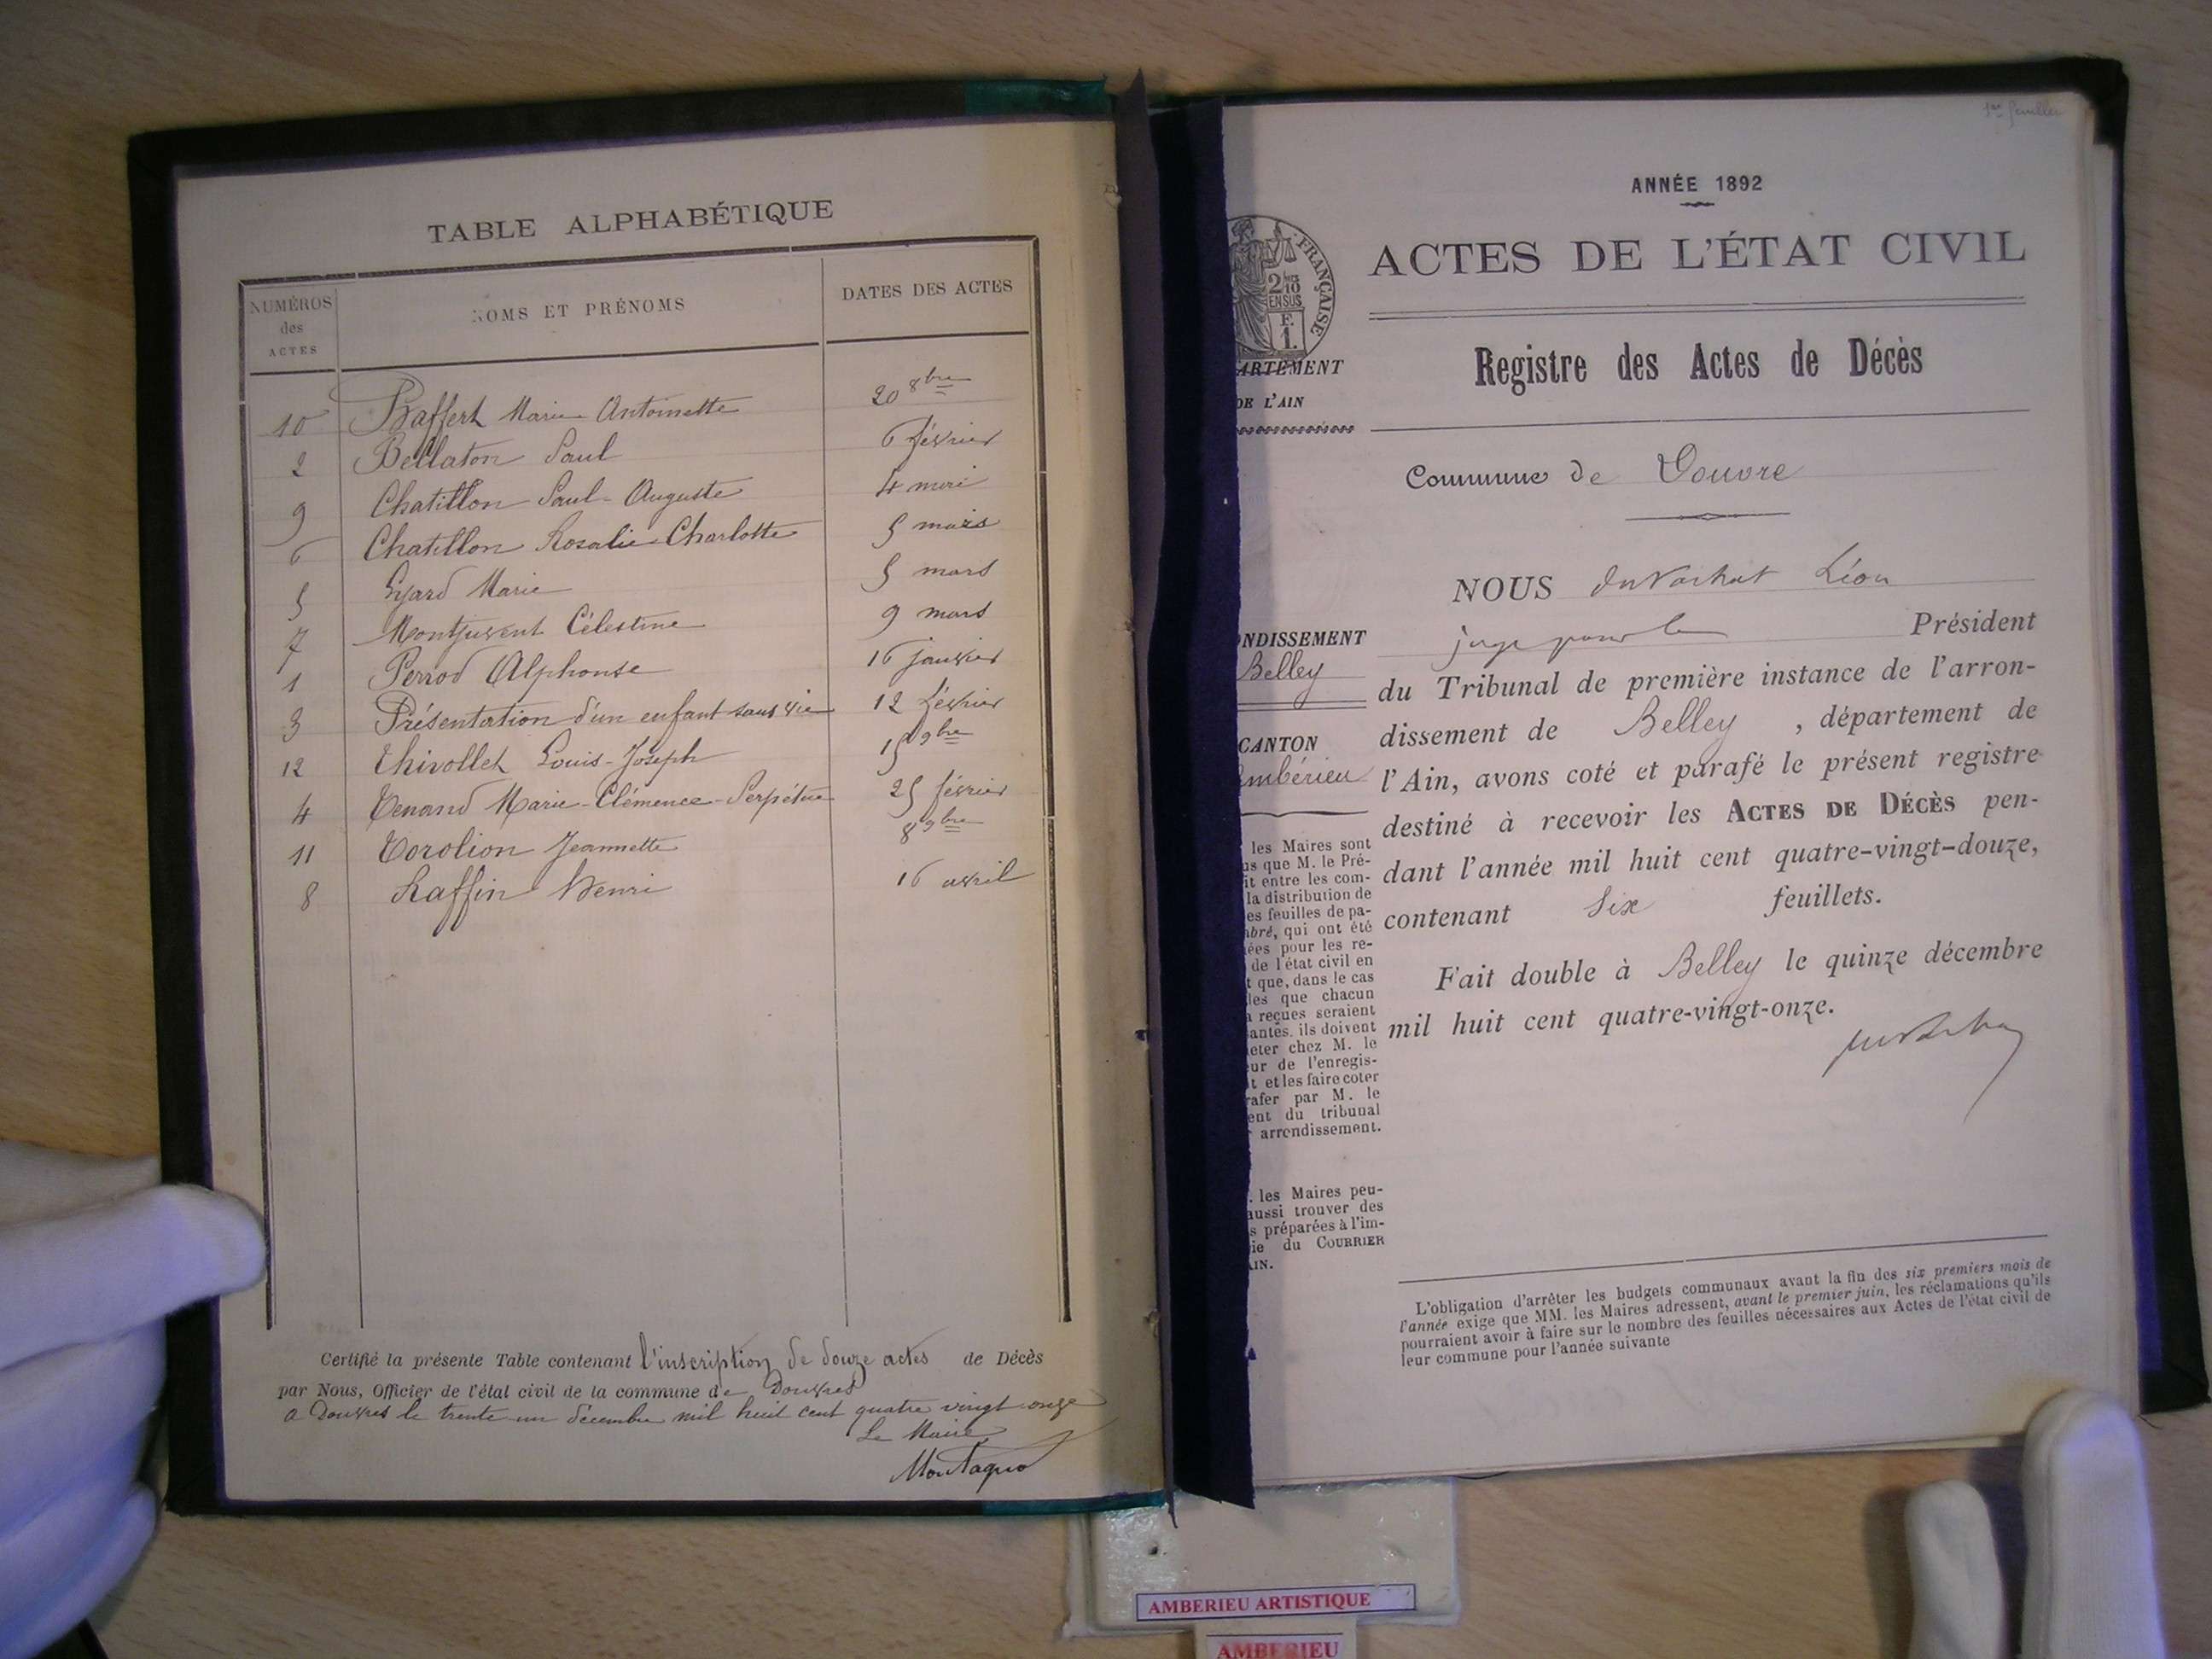 TABLE ALPHABÉTIQUE
NUMÉROS des ACTES
NOMS ET PRÉNOMS
DATES DES ACTES
10 Baffert Marie Antoinette 20 8bre
2 Bellaton Paul 6 février
9 Chatillon Paul-Auguste 4 mai
6 Chatillon Rosalie-Charlotte 5 mars
5 Marie 5 mars
7 Montjuvent Célestine 9 mars
1 Perrod Alphonse 16 janvier
3 Présentation d'un enfant sans vie 12 février
12 Thivollet Louis-Joseph 15 9bre
4 Tenand Marie-Clémence-Perpétue 25 février
11 Torolion Jeannette 8 9bre
8 Raffin Henri 16 avril
Certifié la présente Table contenant l'inscription de douze actes de Décès
par Nous, Officier de l'état civil de la commune de Douvres
a Douvres le trente un décembre mil huit cent quatre vingt onze
Le Maire
Montagno
1er feuillet
ANNÉE 1892
ACTES DE L'ÉTAT CIVIL
FRANÇAISE
2/10
EN SUS
F.
1.
ARTEMENT
DE L'AIN
Registre des Actes de Décès
Commune de Douvre
NDISSEMENT
Belley
CANTON
mbérieu
NOUS Léon
juge pour le Président
du Tribunal de première instance de l'arron-
dissement de Belley, département de
l'Ain, avons coté et parafé le présent registre
destiné à recevoir les ACTES DE DÉCÈS pen-
dant l'année mil huit cent quatre-vingt-douze,
contenant Six feuillets.
Fait double à Belley le quinze décembre
mil huit cent quatre-vingt-onze.
les Maires sont
us que M. le Pré-
it entre les com-
la distribution de
es feuilles de pa-
mbré, qui ont été
ées pour les re-
de l'état civil en
t que, dans le cas
les que chacun
a reçues seraient
antes, ils doivent
eter chez M. le
ur de l'enregis-
t et les faire coter
rafer par M. le
ent du tribunal
arrondissement.
. les Maires peu-
aussi trouver des
s préparées à l'im-
ie du COURRIER
AIN.
L'obligation d'arrêter les budgets communaux avant la fin des six premiers mois de
l'année exige que MM. les Maires adressent, avant le premier juin, les réclamations qu'ils
pourraient avoir à faire sur le nombre des feuilles nécessaires aux Actes de l'état civil de
leur commune pour l'année suivante
AMBERIEU ARTISTIQUE
AMBERIEU